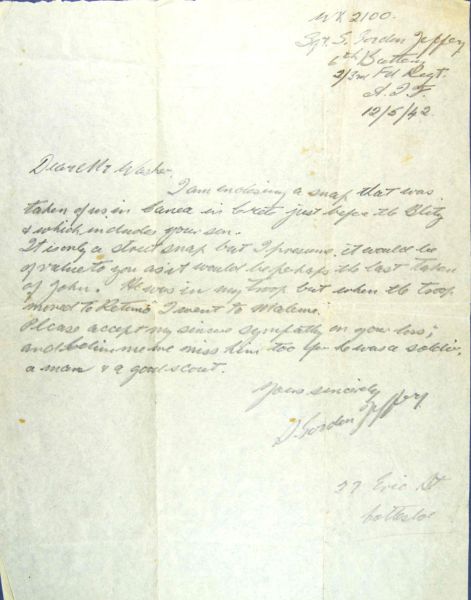 WX 2100.
Sgt. S. Gordon Jeffery
6th Battery
2/3rd Fd Regt.
A.I.F.
12/5/42
Dear Mr Washer,
I am enclosing a snap that was
taken of us in Canea in Crete just before the Blitz
& which includes your son.
It is only a street snap but I presume it would be
of value to you as it would be perhaps the last taken
of John. He was in my troop but when the troop
moved to Retimo I went to Maleme.
Please accept my sincere sympathy on your loss;
and believe me we miss him too for he was a soldier,
a man & a good scout.
Yours sincerely
S. Gordon Jeffery
27 Eric St
Cottesloe